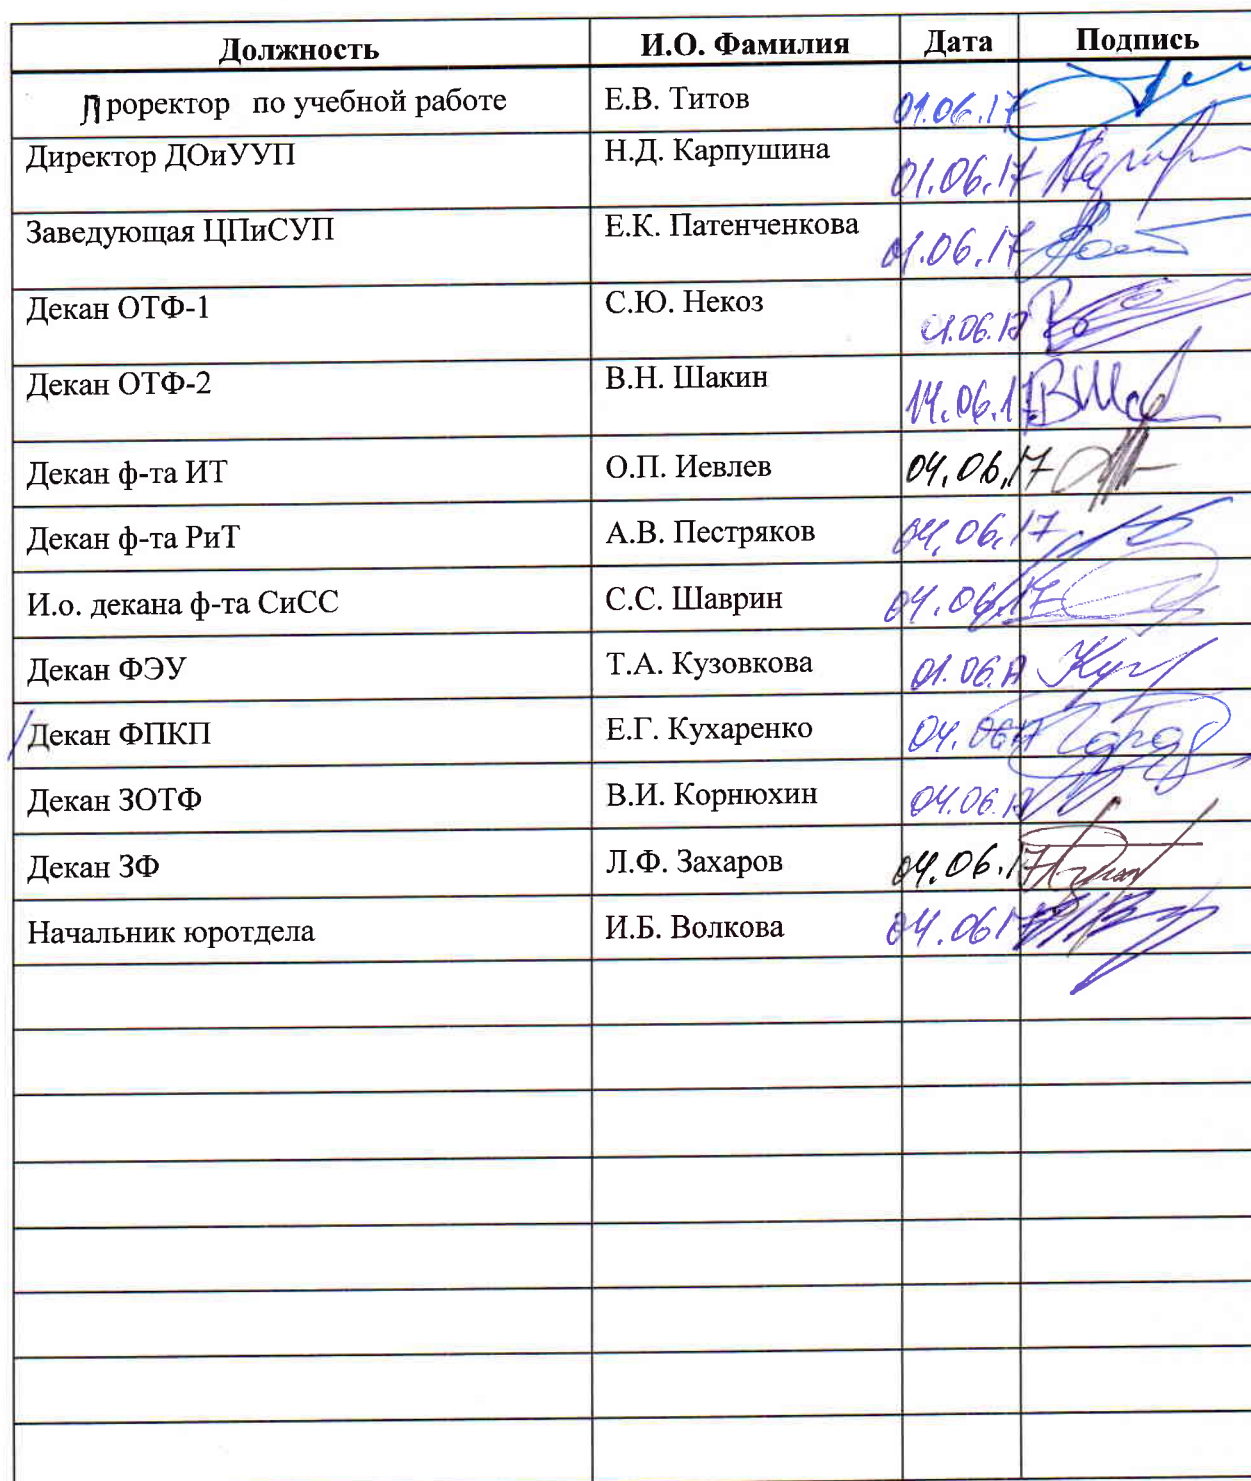 Должность И.О. Фамилия Дата Подпись
Проректор по учебной работе Е.В. Титов 01.06.17
Директор ДОиУУП Н.Д. Карпушина 01.06.17
Заведующая ЦПиСУП Е.К. Патенченкова 01.06.17
Декан ОТФ-1 С.Ю. Некоз 01.06.17
Декан ОТФ-2 В.Н. Шакин 14.06.17
Декан ф-та ИТ О.П. Иевлев 04.06.17
Декан ф-та РиТ А.В. Пестряков 04.06.17
И.о. декана ф-та СиСС С.С. Шаврин 04.06.17
Декан ФЭУ Т.А. Кузовкова 01.06.17
Декан ФПКП Е.Г. Кухаренко 04.06.17
Декан ЗОТФ В.И. Корнюхин 04.06.17
Декан ЗФ Л.Ф. Захаров 04.06.17
Начальник юротдела И.Б. Волкова 04.06.17